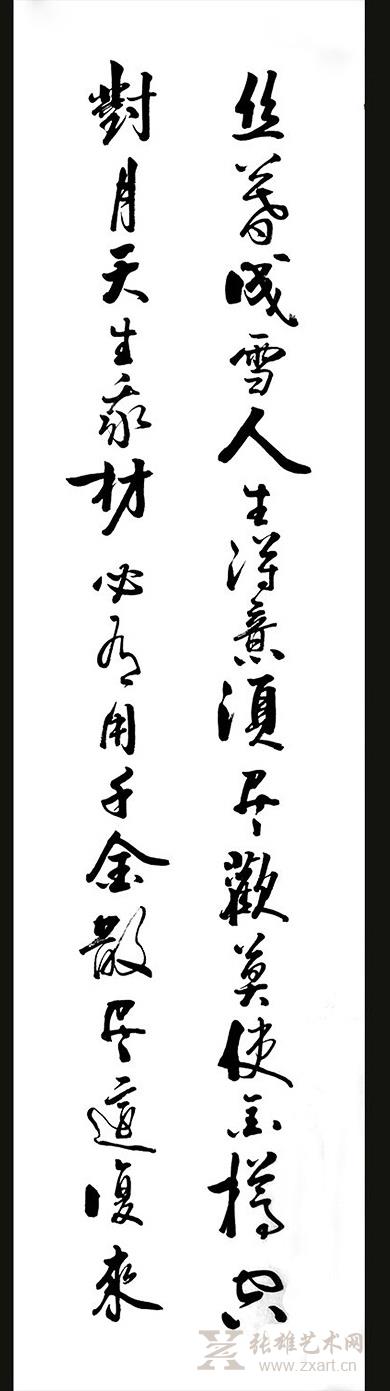 丝暮成雪人生得意須尽歡莫使金樽空
對月天生我材必有用千金散尽還復來
张雄艺术网
www.zxart.cn